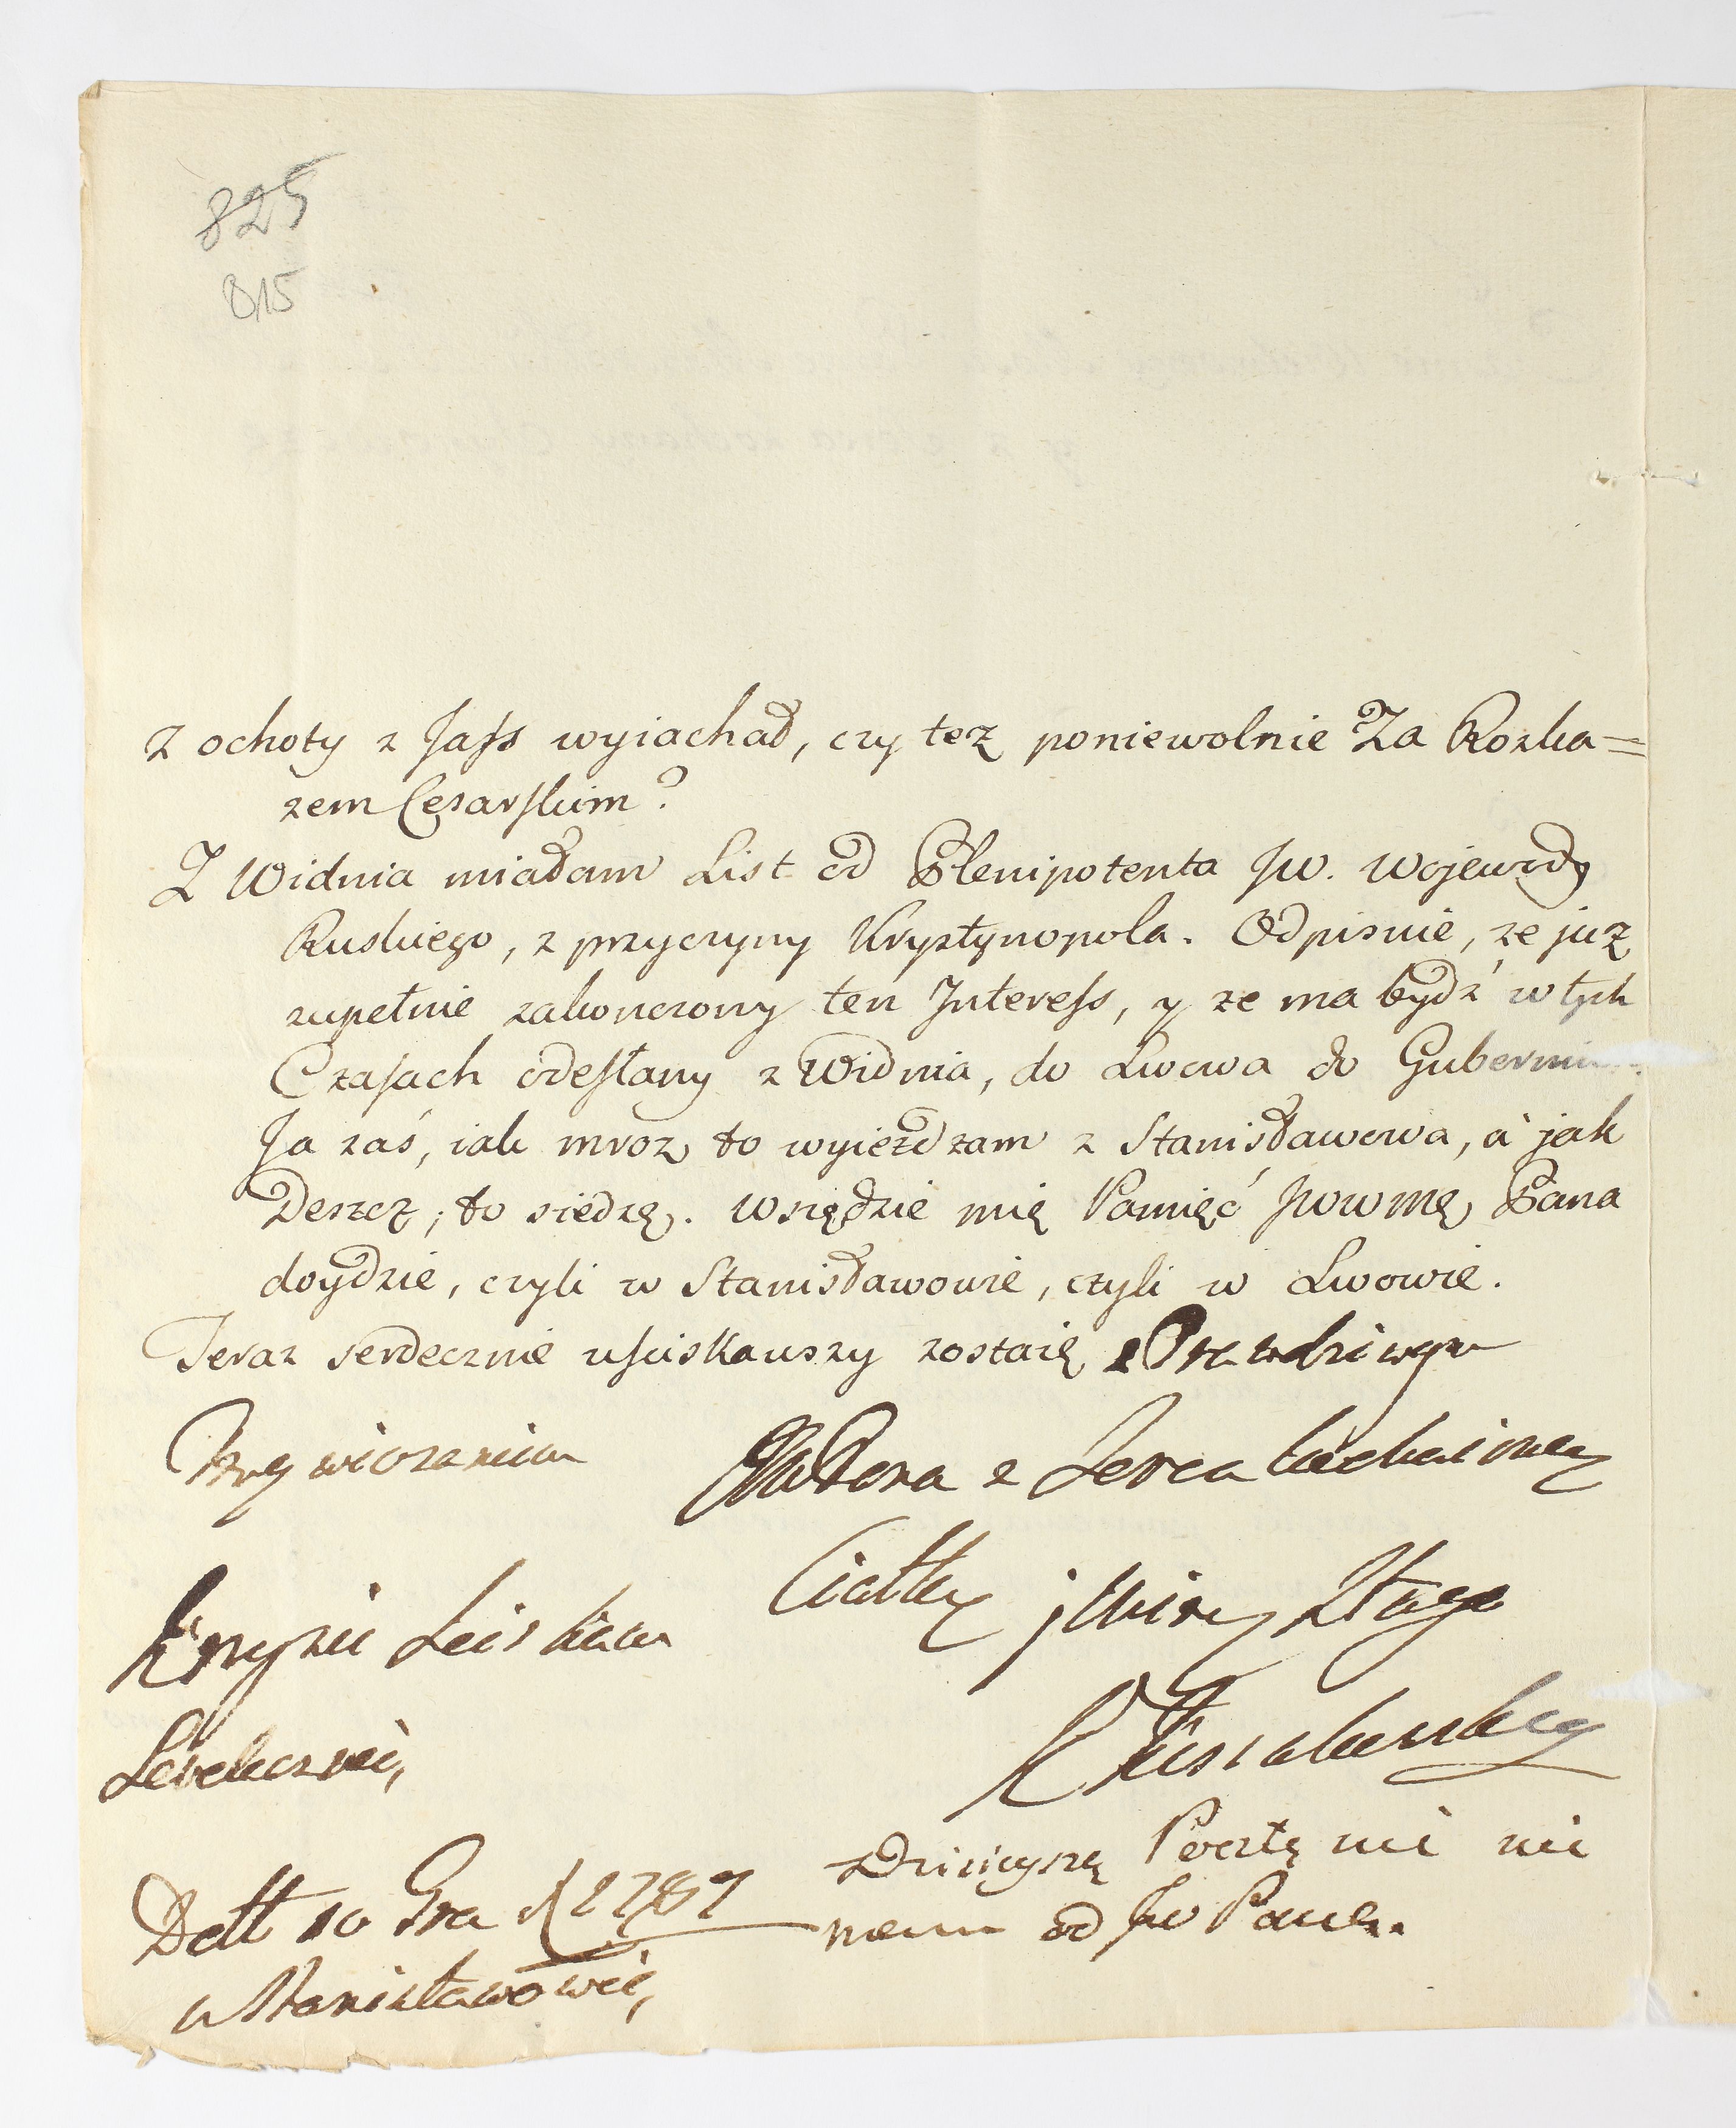 825
815
z ochoty z Jass wyiachał, czy też poniewolnie Za Rozka=
zem Cesarskim?
Z Widnia miałam List od Plenipotenta Jw. Wojewody
Ruskiego, z przyczyny Krystynopola. Odpisuie, że już
zupełnie zakonczony ten Interess, y że ma bydź w tych
Czasach odesłany z Widnia, do Lwowa do Gubernium.
Ja zaś, iak mroz to wyieżdzam z Stanisławowa, a jak
Deszcz, to siedzę. Wszędzie mię Pamięć Jwwmę Pana
doydzie, czyli w Stanisławowie, czyli w Lwowie.
Teraz serdecznie usciskauszy zostaię z Prawdziwym
Przywiązaniem
JW Pana z Serca kochaiącą
Ciotką j Unizą Sługą
Krysię Sciskam
Serdecznie,
Kossakowska
Datt 10 Gra 1787
w Stanisławowie,
Dzisieyszą Pocztę nic nie
mam od Jw Pana.